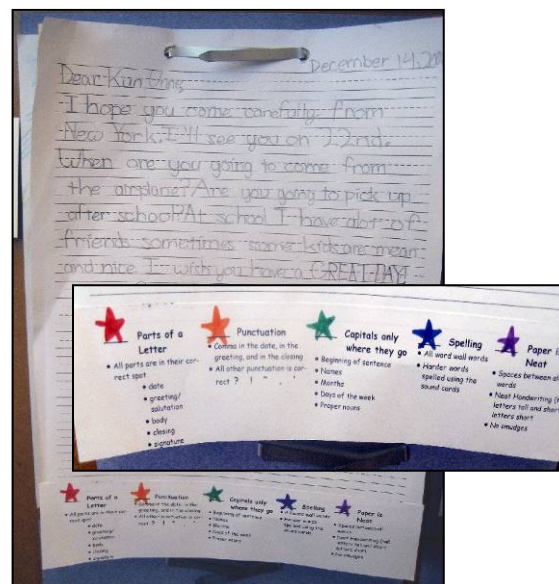 December 14, 20
Dear Kun Unne,
I hope you come carefully from
New York. I'll see you on 22nd.
When are you going to come from
the airplane? Are you going to pick up
after school? At school I have alot of
friends sometimes some kids are mean
and nice I wish you have a GREAT DAY!
Parts of a
Letter
• All parts are in their cor-
rect spot
• date
• greeting/
salutation
• body
• closing
• signature
Punctuation
• Comma in the date, in the
greeting, and in the closing
• All other punctuation is cor-
rect ? ! " . '
Capitals only
where they go
• Beginning of sentence
• Names
• Months
• Days of the week
• Proper nouns
Spelling
• All word wall words
• Harder words
spelled using the
sound cards
Paper is
Neat
• Spaces between all
words
• Neat Handwriting (
letters tall and short
letters short
• No smudges
Parts of a
Letter
• All parts are in their cor-
rect spot
• date
• greeting/
salutation
• body
• closing
• signature
Punctuation
• Comma in the date, in the
greeting, and in the closing
• All other punctuation is cor-
rect ? ! " . '
Capitals only
where they go
• Beginning of sentence
• Names
• Months
• Days of the week
• Proper nouns
Spelling
• All word wall words
• Harder words
spelled using the
sound cards
Paper is
Neat
• Spaces between all
words
• Neat Handwriting (
letters tall and short
letters short
• No smudges